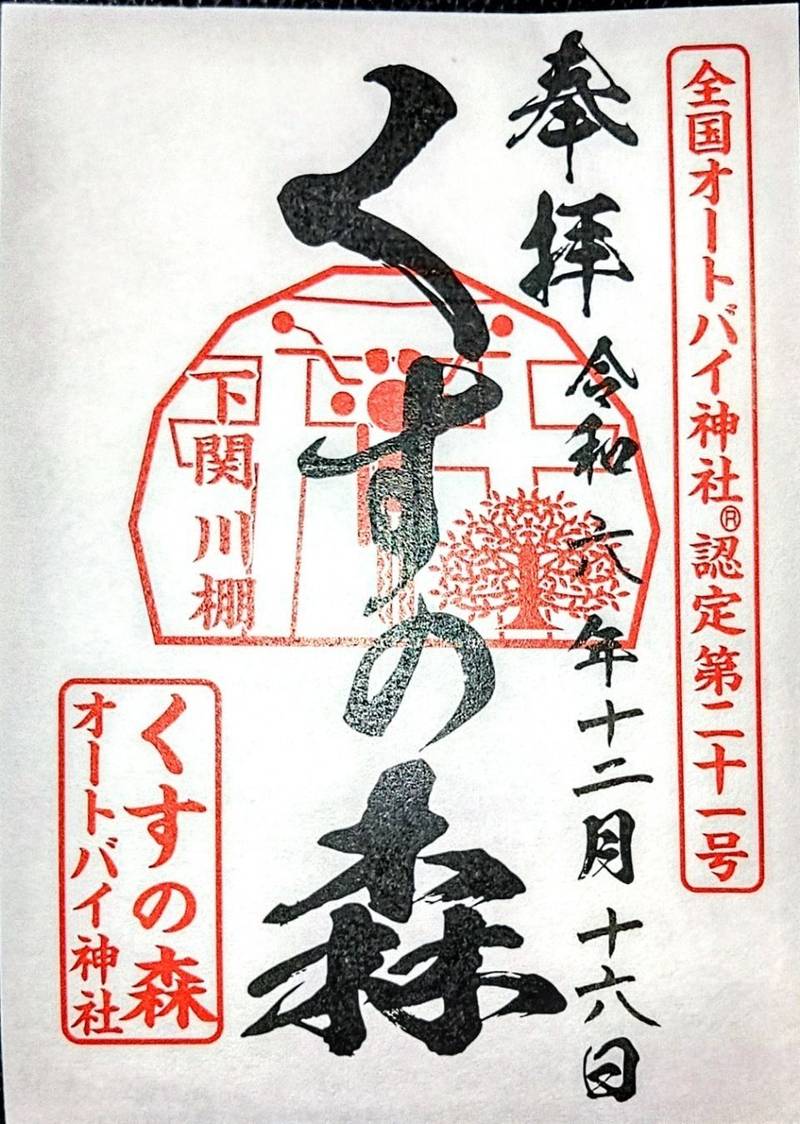 全国オートバイ神社®認定第二十一号
奉拝 令和六年十二月十六日
くすの森
下関川棚
くすの森
オートバイ神社